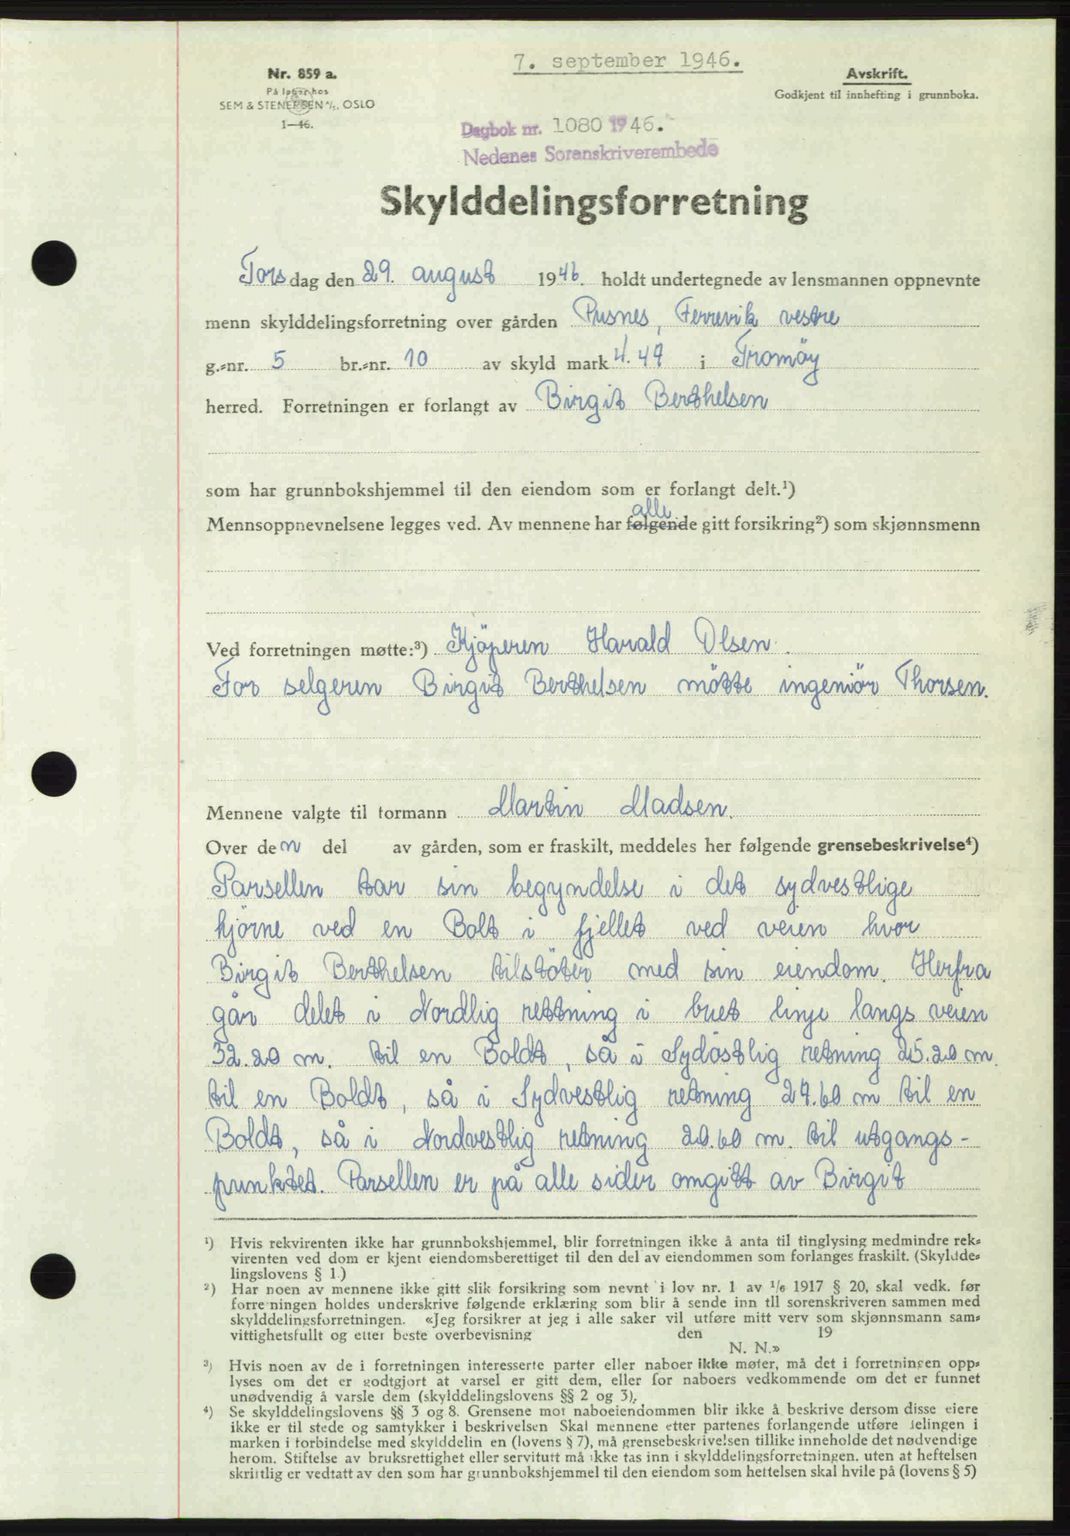 7. september 1946.
Nr. 859 a.
På lager hos
SEM & STENERSEN A/S, OSLO
1—46.
Avskrift.
Godkjent til innhefting i grunnboka.
Dagbok nr. 1080 1946.
Nedenes Sorenskriverembede
Skylddelingsforretning
Torsdag den 29. august 1946. holdt undertegnede av lensmannen oppnevnte
menn skylddelingsforretning over gården Pusnes, Ferrevik vestre
g.-nr. 5 br.-nr. 10 av skyld mark 4.49 i Tromöy
herred. Forretningen er forlangt av Birgit Berthelsen
som har grunnbokshjemmel til den eiendom som er forlangt delt.¹)
alle
Mennsoppnevnelsene legges ved. Av mennene har følgende gitt forsikring²) som skjønnsmenn
Ved forretningen møtte:³) Kjöperen Harald Olsen.
For selgeren Birgit Berthelsen mötte ingeniör Thorsen.
Mennene valgte til formann Martin Madsen.
Over den del av gården, som er fraskilt, meddeles her følgende grensebeskrivelse⁴)
Parsellen tar sin begyndelse i det sydvestlige
hjörne ved en Bolt i fjellet ved veien hvor
Birgit Berthelsen tilstöter med sin eiendom. Herfra
går delet i Nordlig rettning i buet linje langs veien
32.20 m. til en Boldt, så i Sydöstlig retning 25.20 m.
til en Boldt, så i Sydvestlig retning 29.60 m til en
Boldt, så i Nordvestlig retning 20.60 m. til utgangs-
punktet. Parsellen er på alle sider omgitt av Birgit
¹) Hvis rekvirenten ikke har grunnbokshjemmel, blir forretningen ikke å anta til tinglysing medmindre rek-
virenten ved dom er kjent eiendomsberettiget til den del av eiendommen som forlanges fraskilt. (Skyldde-
lingslovens § 1.)
²) Har noen av mennene ikke gitt slik forsikring som nevnt i lov nr. 1 av 1/6 1917 § 20, skal vedk. før
forretningen holdes underskrive følgende erklæring som blir å sende inn til sorenskriveren sammen med
skylddelingsforretningen. «Jeg forsikrer at jeg i alle saker vil utføre mitt verv som skjønnsmann sam-
vittighetsfullt og etter beste overbevisning den 19
N. N.»
³) Hvis noen av de i forretningen interesserte parter eller naboer ikke møter, må det i forretningen opp-
lyses om det er godtgjort at varsel er gitt dem, eller for naboers vedkommende om det er funnet
unødvendig å varsle dem (skylddelingslovens §§ 2 og 3).
⁴) Se skylddelingslovens §§ 3 og 8. Grensene mot naboeiendommen blir ikke å beskrive dersom disse eiere
ikke er til stede og samtykker i beskrivelsen Skal mennene etter partenes forlangende utføre delingen i
marken i forbindelse med skylddelingen (lovens § 7), må grensebeskrivelsen tillike inneholde det nødvendige
herom. Stiftelse av bruksrettighet eller servitutt må ikke tas inn i skylddelingsforretningen, uten at heftelsen
skriftlig er vedtatt av den som har grunnbokshjemmel til den eiendom som heftelsen skal hvile på (lovens § 5)